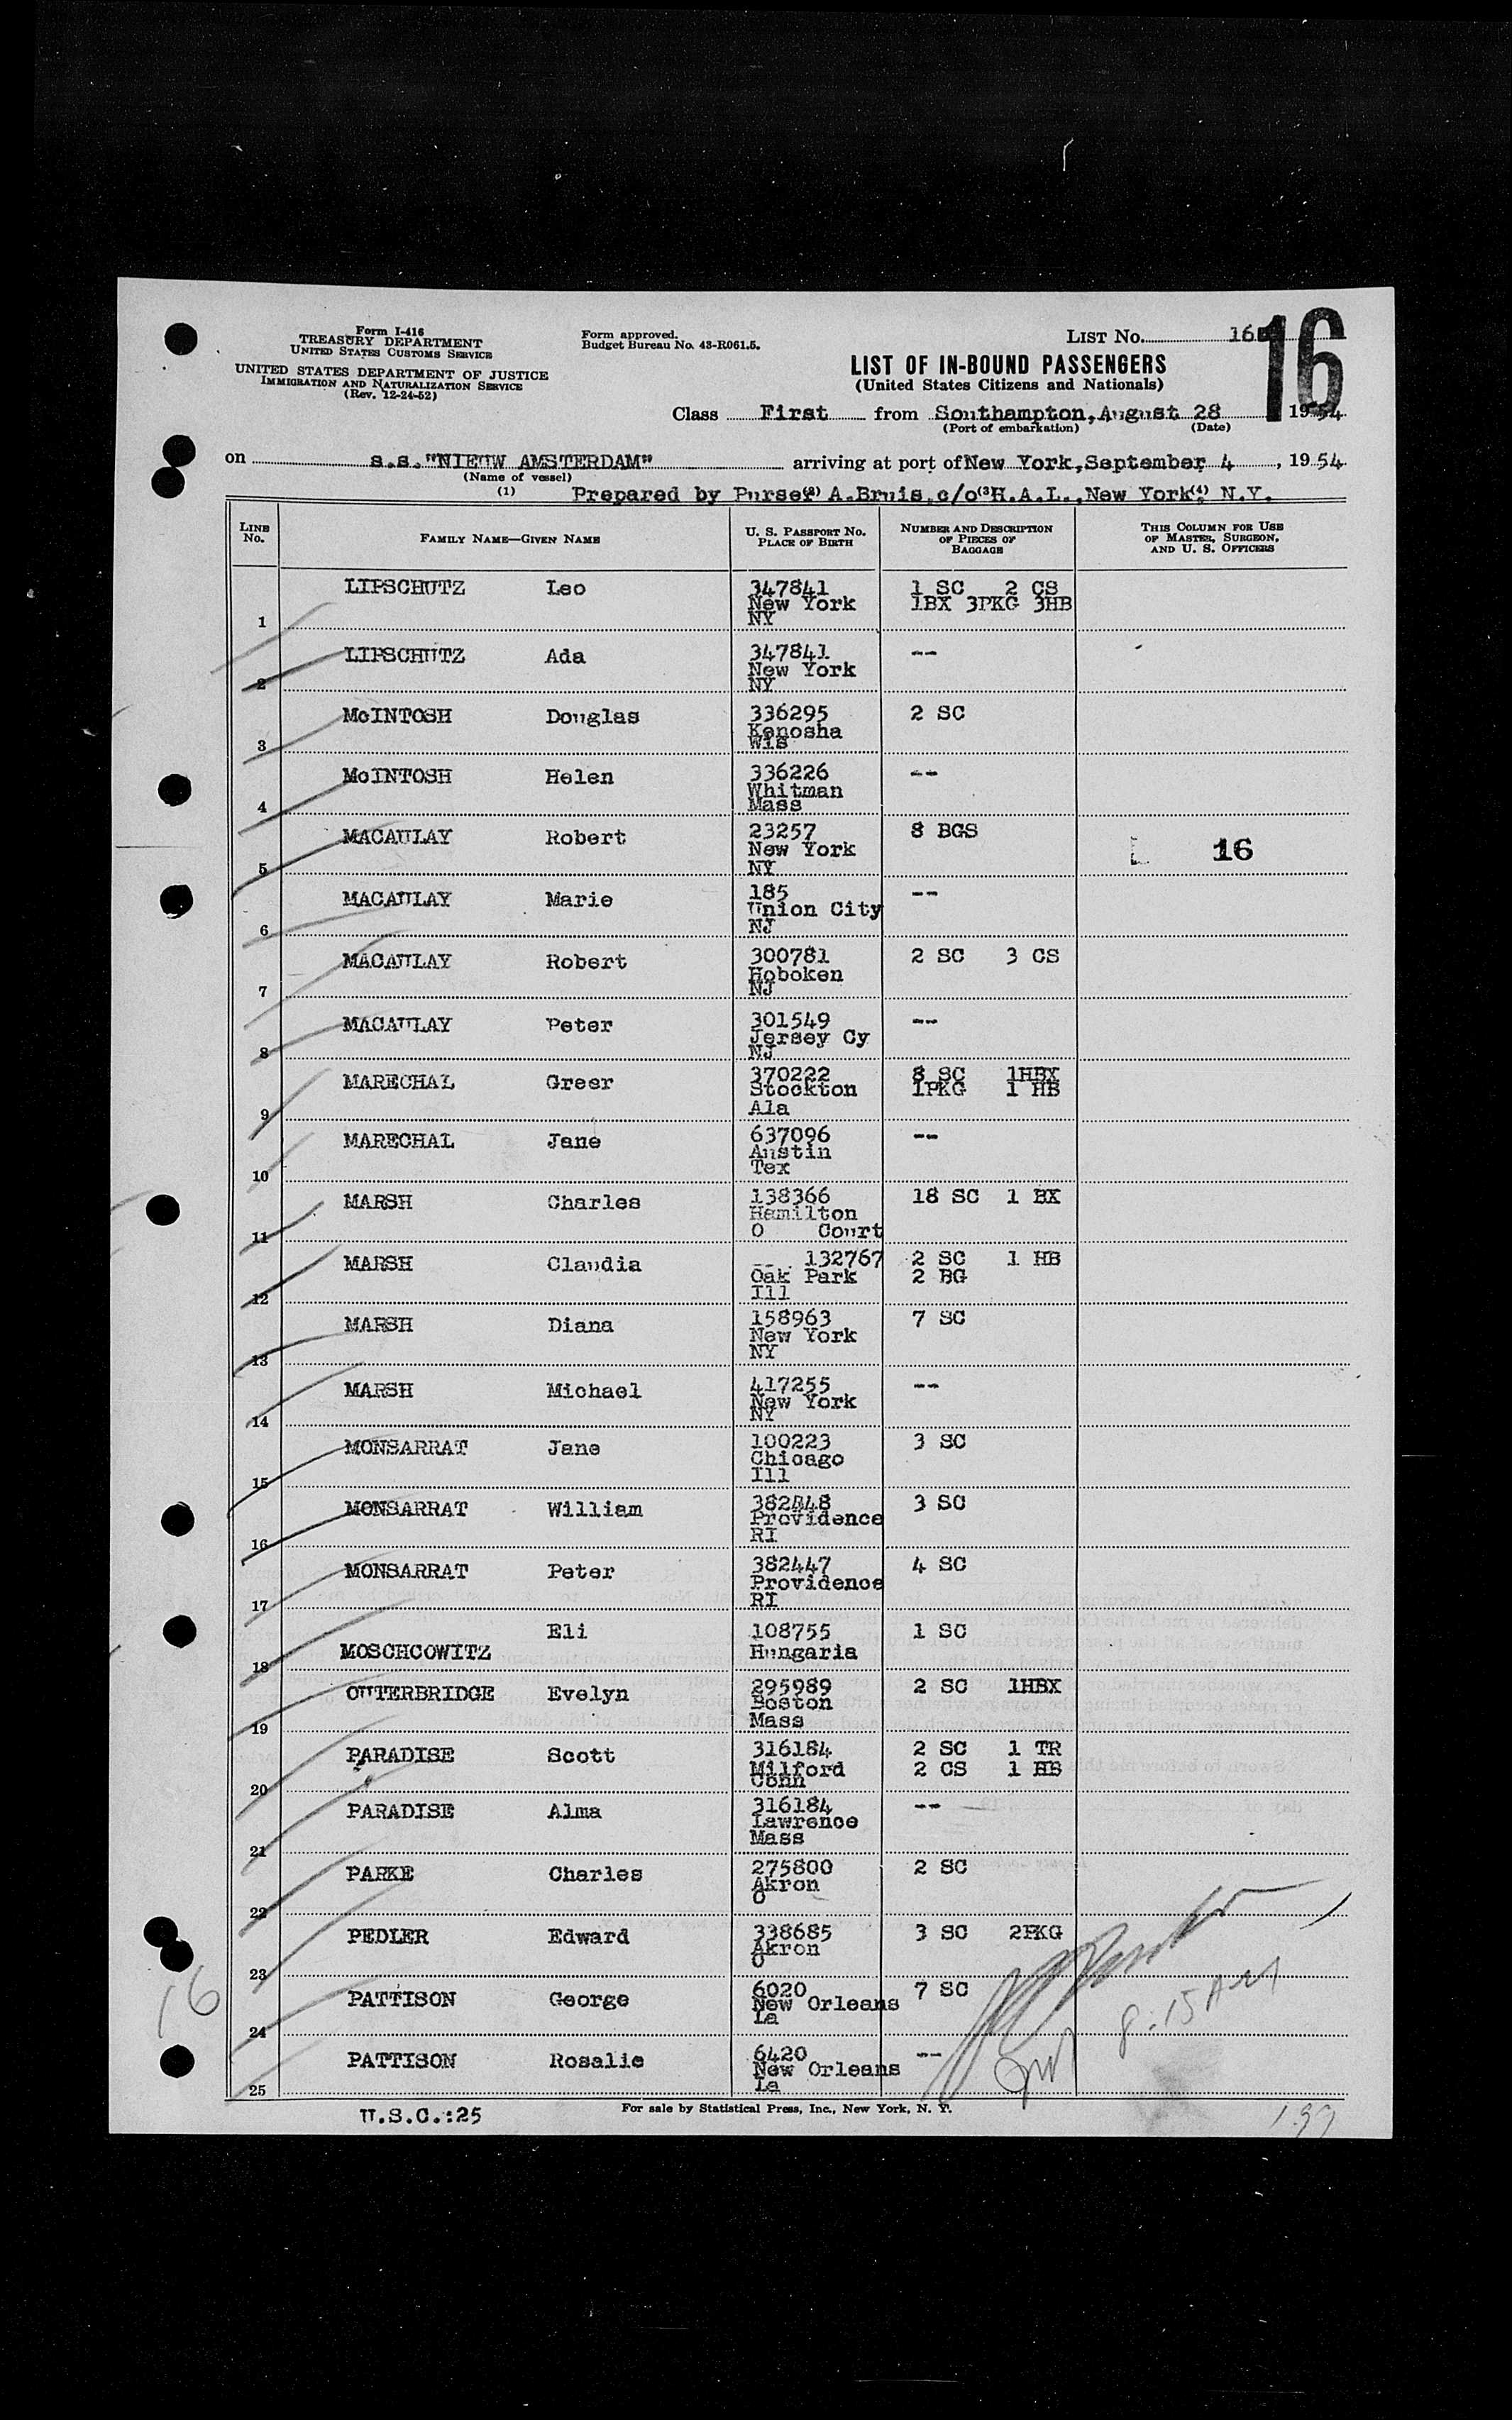 Form I-416
TREASURY DEPARTMENT
UNITED STATES CUSTOMS SERVICE
UNITED STATES DEPARTMENT OF JUSTICE
IMMIGRATION AND NATURALIZATION SERVICE
(Rev. 12-24-52)
Form approved.
Budget Bureau No. 43-R061.5.
LIST No. 16
16
LIST OF IN-BOUND PASSENGERS
(United States Citizens and Nationals)
Class First from Southampton, August 28 1954
(Port of embarkation) (Date)
on s.s."NIEUW AMSTERDAM" arriving at port of New York, September 4, 1954
(Name of vessel)
(1) Prepared by Purser (2) A.Bruis, c/o (3) H.A.L., New York (4) N.Y.
LINE No.
FAMILY NAME—GIVEN NAME
U. S. PASSPORT NO. PLACE OF BIRTH
NUMBER AND DESCRIPTION OF PIECES OF BAGGAGE
THIS COLUMN FOR USE OF MASTER, SURGEON, AND U. S. OFFICERS
1 LIPSCHUTZ Leo 347841 1 SC 2 CS
New York 1BX 3PKG 3HB
NY
2 LIPSCHUTZ Ada 347841 --
New York
NY
3 McINTOSH Douglas 336295 2 SC
Kenosha
Wis
4 McINTOSH Helen 336226 --
Whitman
Mass
5 MACAULAY Robert 23257 8 BGS
New York 16
NY
6 MACAULAY Marie 185 --
Union City
NJ
7 MACAULAY Robert 300781 2 SC 3 CS
Hoboken
NJ
8 MACAULAY Peter 301549 --
Jersey Cy
NJ
9 MARECHAL Greer 370222 8 SC 1HBX
Stockton 1PKG 1 HB
Ala
10 MARECHAL Jane 637096 --
Austin
Tex
11 MARSH Charles 138366 18 SC 1 BX
Hamilton
O Court
12 MARSH Claudia 132767 2 SC 1 HB
Oak Park 2 BG
Ill
13 MARSH Diana 158963 7 SC
New York
NY
14 MARSH Michael 417255 --
New York
NY
15 MONSARRAT Jane 100223 3 SC
Chicago
Ill
16 MONSARRAT William 382448 3 SC
Providence
RI
17 MONSARRAT Peter 382447 4 SC
Providence
RI
18 MOSCHCOWITZ Eli 108755 1 SC
Hungaria
19 OUTERBRIDGE Evelyn 295989 2 SC 1HBX
Boston
Mass
20 PARADISE Scott 316184 2 SC 1 TR
Milford 2 CS 1 HB
Conn
21 PARADISE Alma 316184 --
Lawrence
Mass
22 PARKE Charles 275800 2 SC
Akron
O
23 PEDLER Edward 338685 3 SC 2PKG
Akron
O
24 PATTISON George 6020 7 SC
New Orleans
La
8:15 AM
16
25 PATTISON Rosalie 6420 --
New Orleans
La
U.S.C.:25
For sale by Statistical Press, Inc., New York, N. Y.